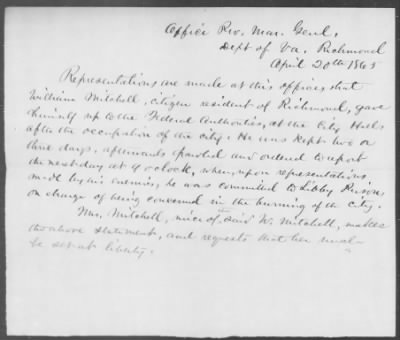 Office Pro. Mar. Genl.
Dept of Va. Richmond
April 20th 1865
Representations are made at this office that
William Mitchell, citizen resident of Richmond, gave
himself up to the Federal Authorities, at the City Hall
after the occupation of the city. He was kept two or
three days, afterwards paroled and ordered to report
the next day at 9 o'clock, when, upon representations
made by his enemies, he was committed to Libby Prison
on charge of being concerned in the burning of the city.
Mrs. Mitchell, niece of said W. Mitchell, makes
the above statement, and requests that her uncle
be set at liberty.